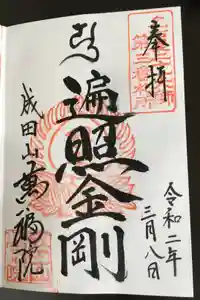 奉拝
令和二年
三月八日
遍照金剛
成田山萬福院